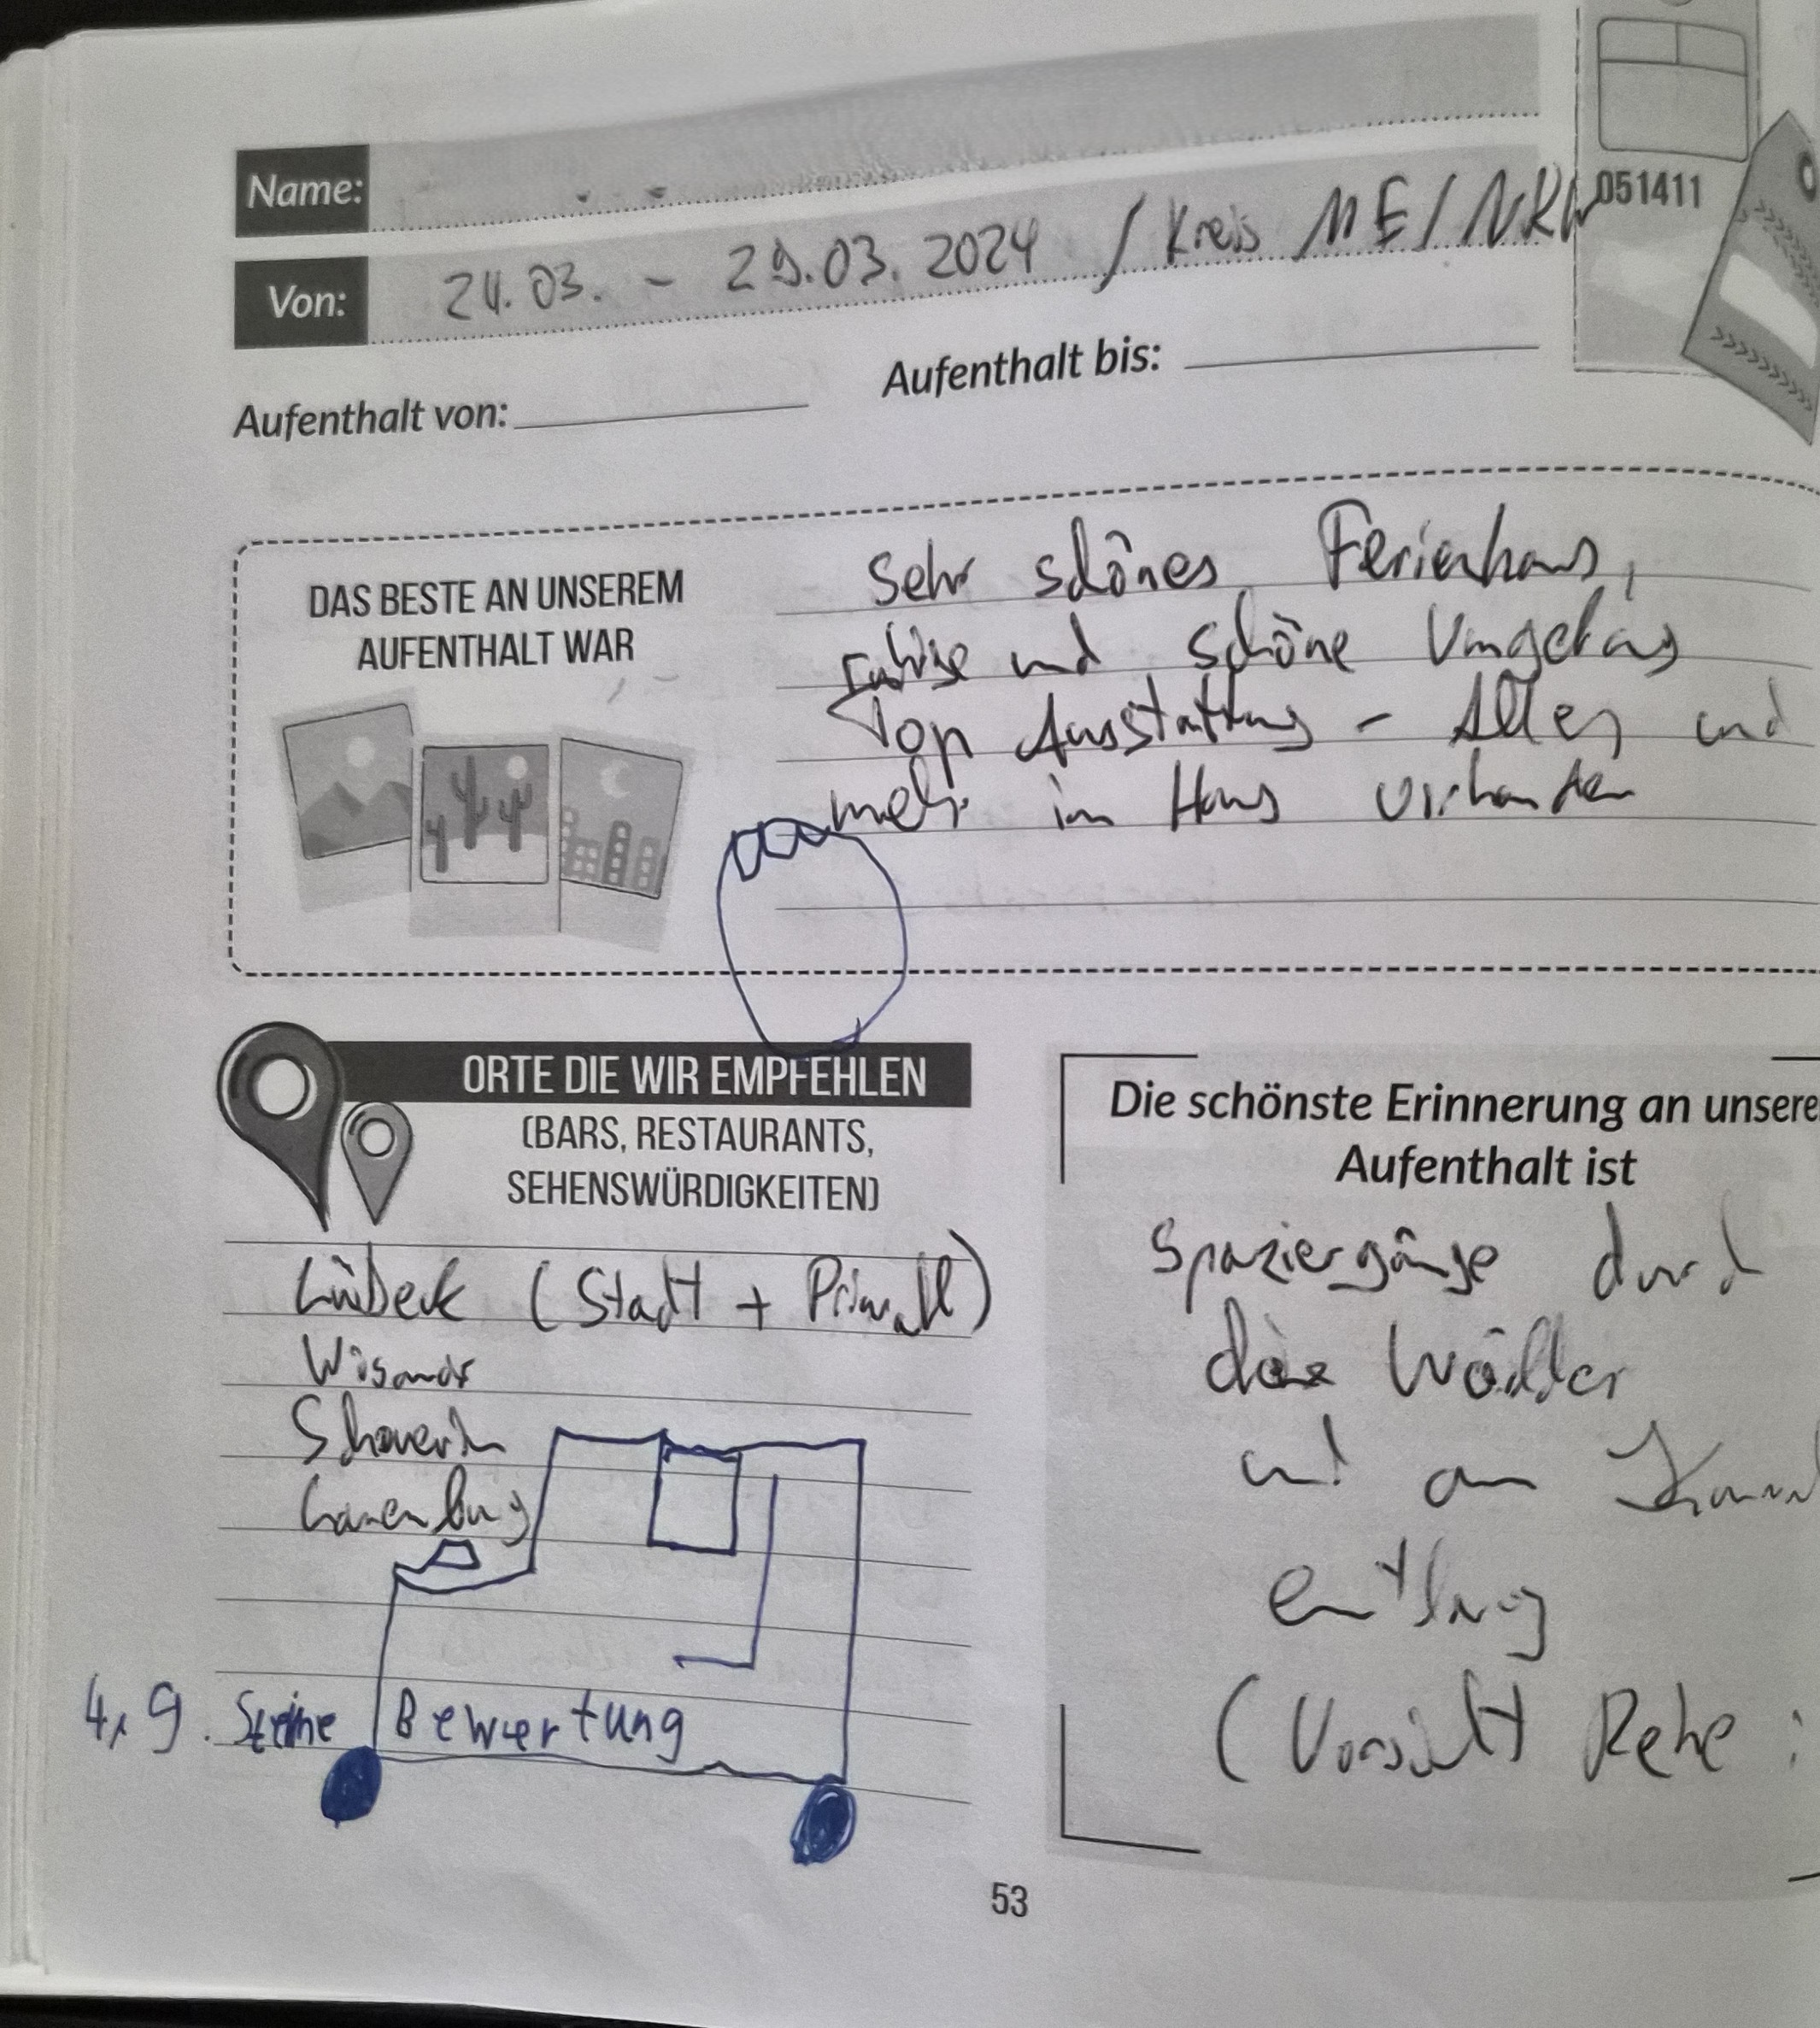 Name:
Von: 24.03. - 29.03.2024 / Kreis ME / NRW
051411
Aufenthalt von:
Aufenthalt bis:
DAS BESTE AN UNSEREM
AUFENTHALT WAR
Sehr schönes Ferienhaus,
ruhige und schöne Umgebung
Top Ausstattung - Alles und
mehr im Haus vorhanden
ORTE DIE WIR EMPFEHLEN
(BARS, RESTAURANTS,
SEHENSWÜRDIGKEITEN)
Lübeck (Stadt + Priwall)
Wismar
Schwerin
Lauenburg
4,9. Steine Bewertung
Die schönste Erinnerung an unsere
Aufenthalt ist
Spaziergänge durch
die Wälder
und am Kanal
entlang
(Vorsicht Rehe :
53